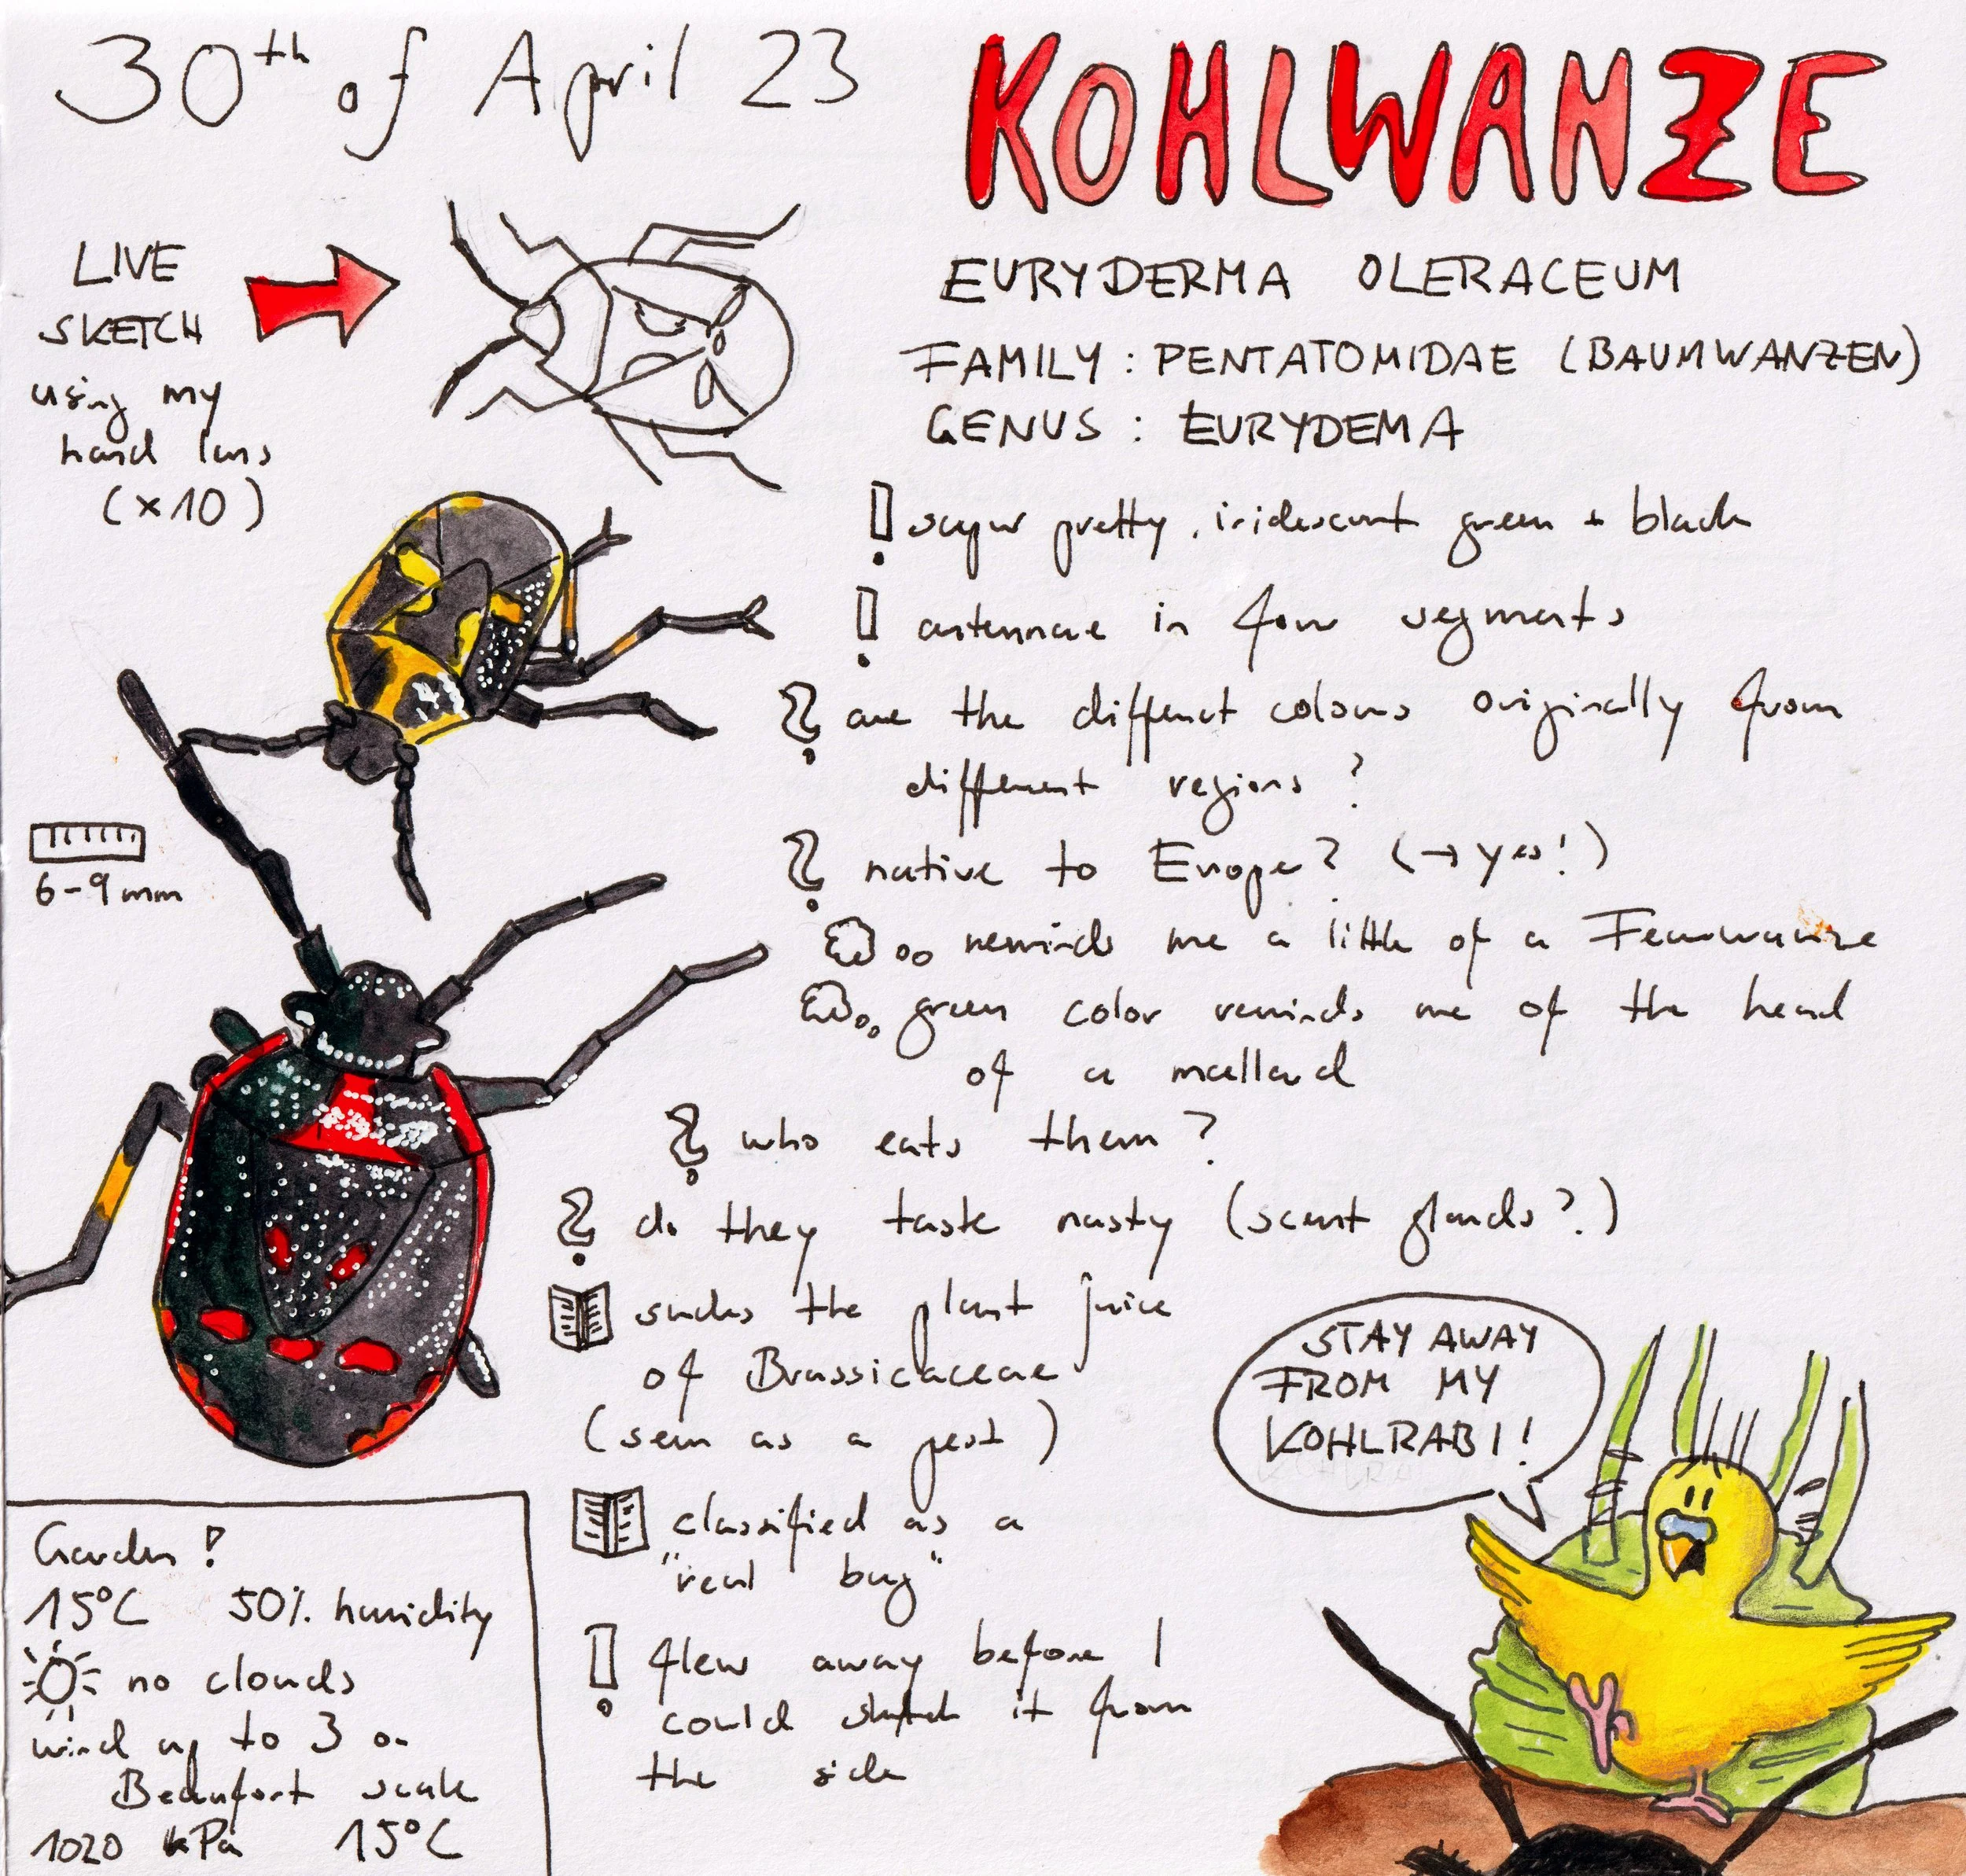 30th of April 23
KOHLWANZE
LIVE
SKETCH
using my
hand lens
(×10)
EURYDERMA OLERACEUM
FAMILY : PENTATOMIDAE (BAUMWANZEN)
GENUS : EURYDEMA
! super pretty, iridescent green + black
! antennae in four segments
? are the different colours originally from
different regions ?
? native to Europe? (→ yes!)
reminds me a little of a Feuerwanze
green color reminds me of the head
of a mallard
? who eats them ?
? do they taste nasty (scent glands?)
6-9mm
sucks the plant juice
of Brassicaceae
(seen as a pest)
classified as a
"real bug"
! flew away before I
could sketch it from
the side
STAY AWAY
FROM MY
KOHLRABI!
Garden !
15°C 50% humidity
no clouds
wind up to 3 on
Beaufort scale
1020 kPa 15°C